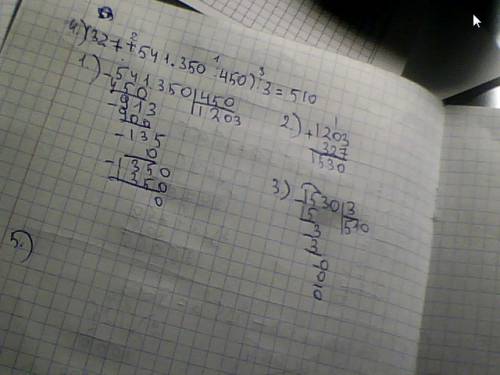 4.) (327 + 541.350 : 450) : 3 = 510
1.) - 541.350 | 450
450 | 1203
- 913
900
- 135
0
- 1350
1350
0
2.) + 1203
327
1530
3) - 1530 | 3
15 | 510
- 3
3
- 0
0
0
5.)